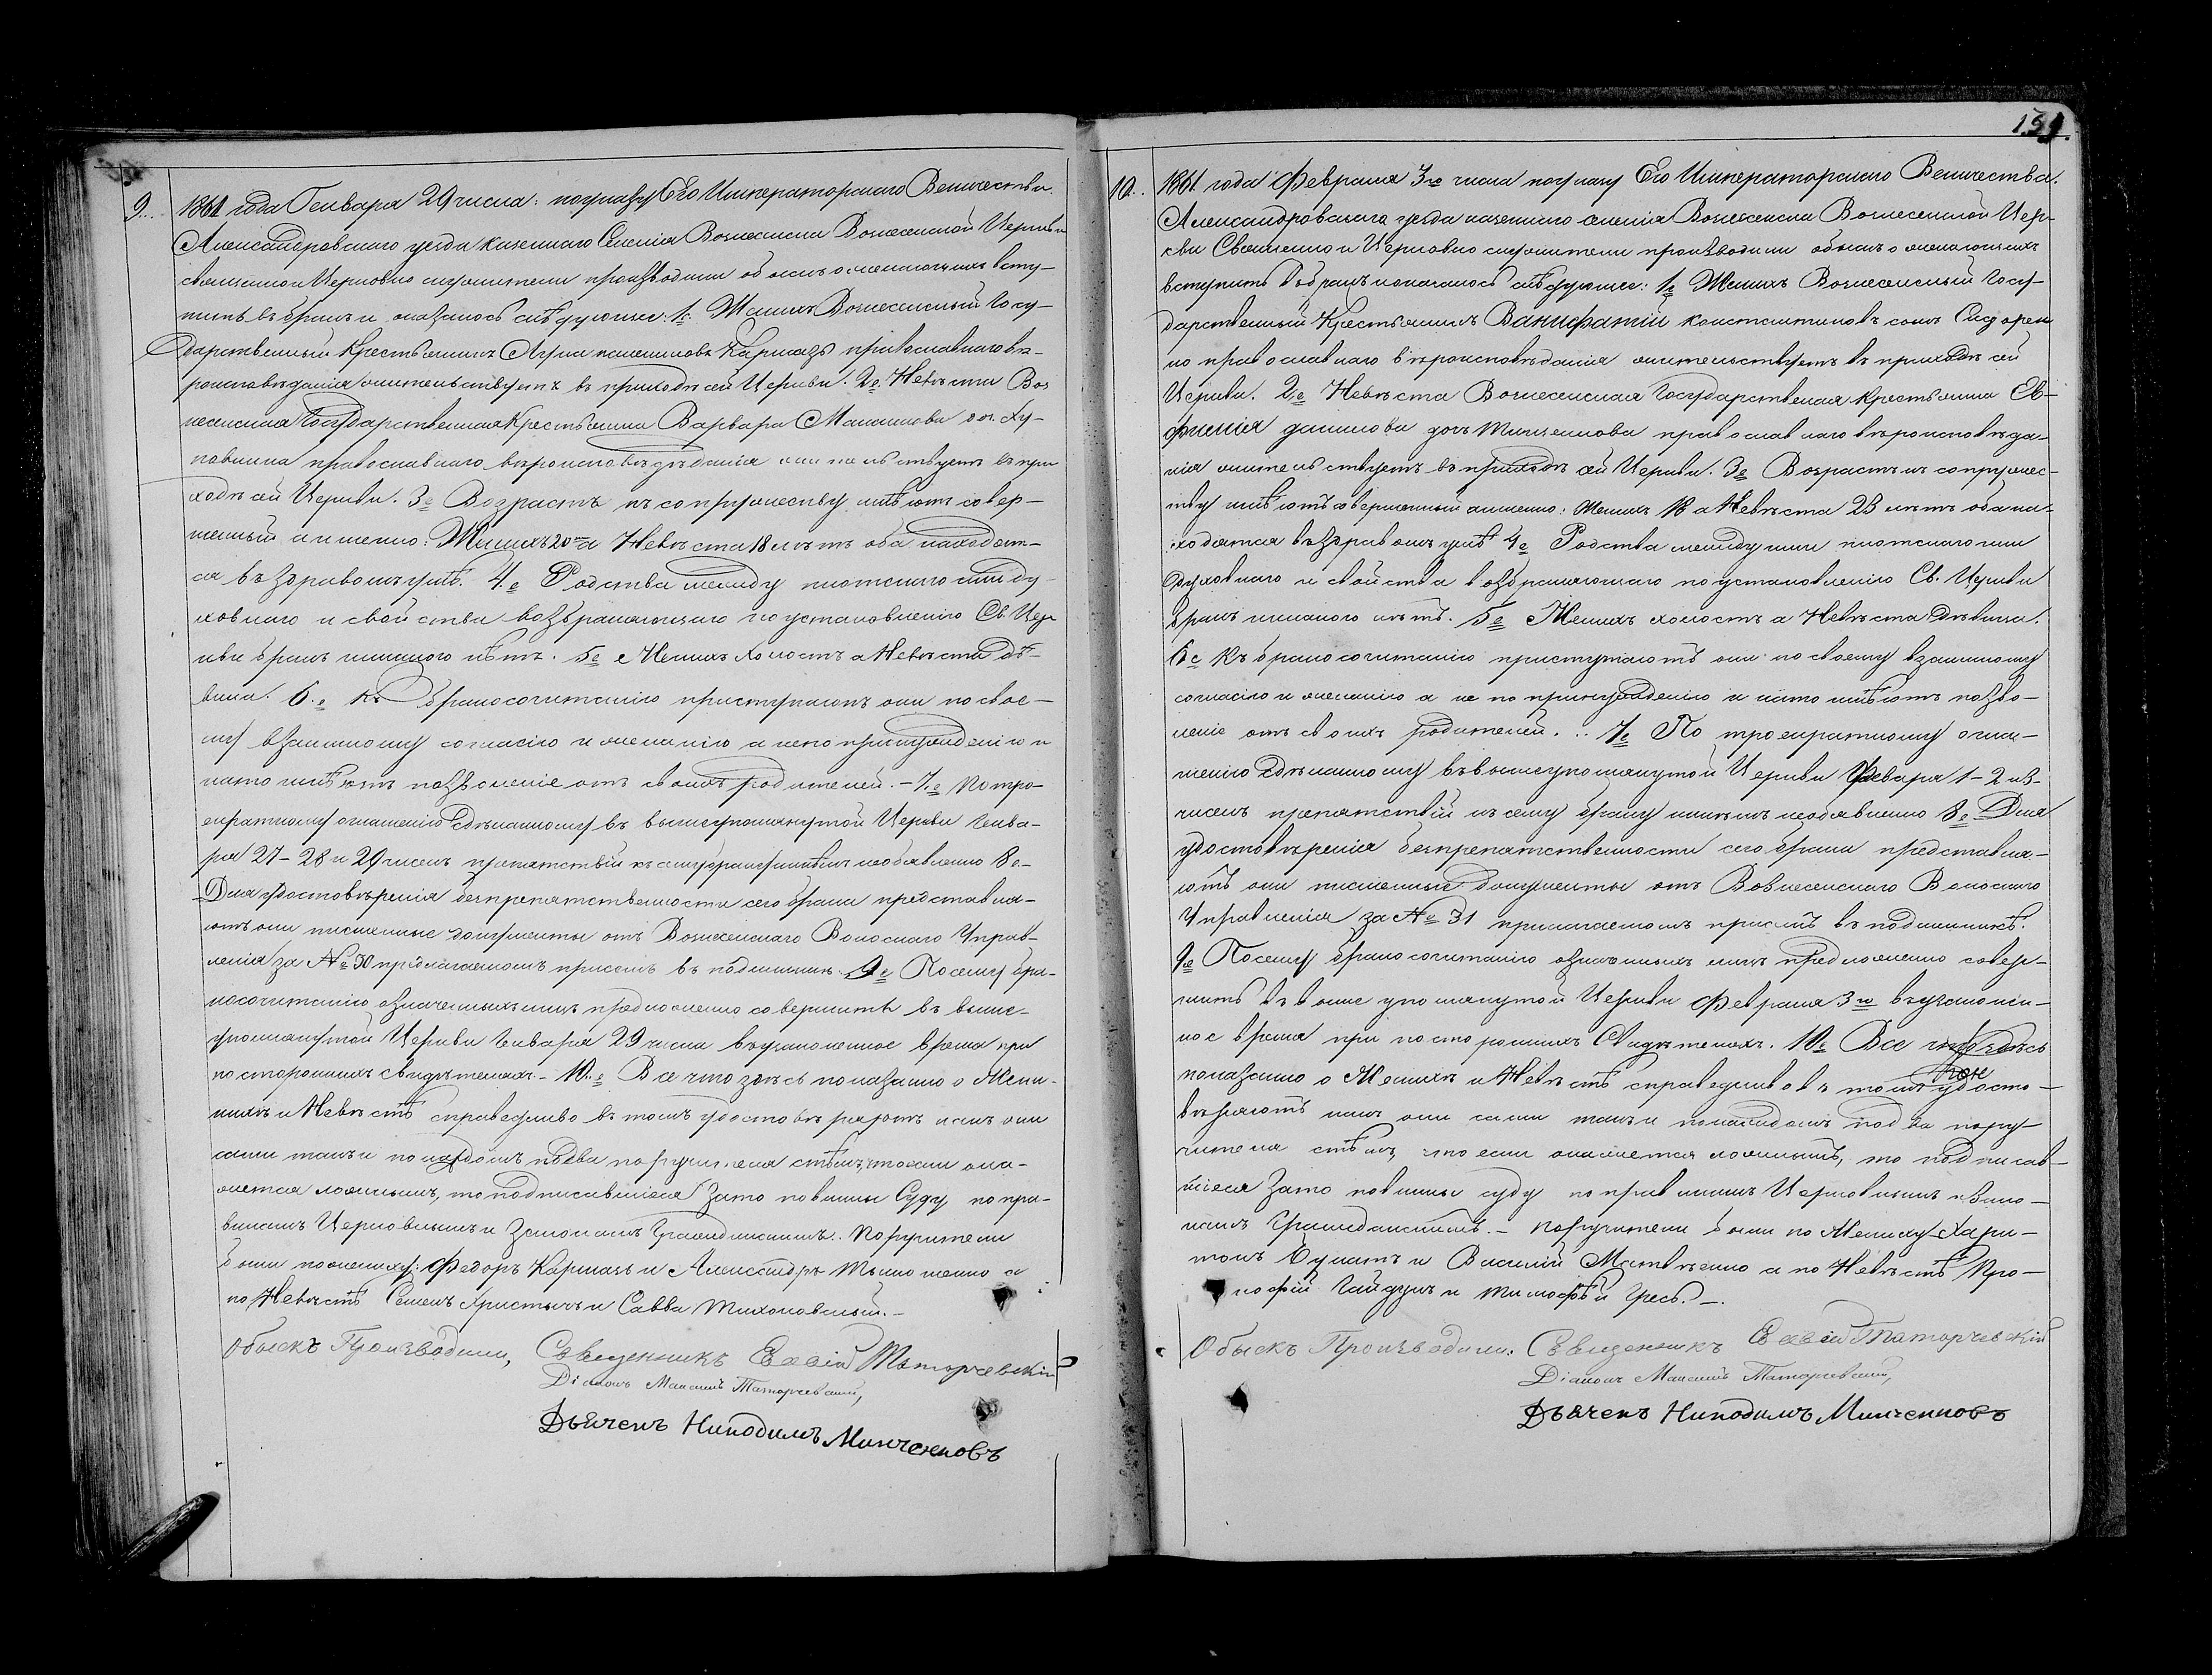 9.
1861 года Генваря 29 числа: по указу Его Императорскаго Величества
Александровскаго уезда казеннаго Селенія Вознесенки Вознесенской Церкви
священно и Церковно служители производили обыскъ о желающихъ всту-
пить въ бракъ и оказалось слѣдующее: 1е Женихъ Вознесенскый Госу-
дарственный Крестьянинъ православнаго вѣ-
роисповѣданія жительствуетъ въ приходѣ сей Церкви. 2е Невѣста Воз
несенская Государственная Крестьянка Варвара
православнаго вѣроисповѣдѣданія жительствуетъ въ при
ходѣ сей Церкви. 3е Возрастъ къ сопружеству имѣютъ совер-
шенный а именно: Женихъ 20ть а Невѣста 18 лѣтъ оба находят-
ся въ здравомъ умѣ. 4.е Родства между плотскаго ду-
ховнаго и свойства возбраняющаго по установленію Св. Цер
кви бракъ никакого нѣтъ. 5е Женихъ холостъ а Невѣста дѣ-
вица. 6.е къ бракосочитанію приступаютъ они по свое-
му взаимному согласію и желанію а не по принужденію и
на то имѣютъ позволеніе отъ своихъ родителей. - 7.е по тро-
екратному оглашенію здѣланному въ вышеупомянутой Церкви Генва-
ря 27 - 28 и 29 чиселъ препятствій къ сему браку никѣмъ необявленно 8е -
Для удостовѣренія безпрепятственности сего брака представля-
ютъ они писменные документы отъ Вознесенскаго Волоснаго Управ-
ленія за № 30 прилагаемомъ присемъ въ подлинникѣ. 9е Посему бра-
косочитанію означенныхъ лицъ предположено совершить въ выше-
упомянутой Церкви Генваря 29 числа въ узаконенное время при
посторонныхъ свидѣтеляхъ - 10.е Все что здѣсь показанно о Жени-
нихѣ и Невѣстѣ справедливо въ томъ удостовѣряютъ какъ они
сами такъ и по каждомъ по два поручителя стѣмъ, что если ока-
жется ложнымъ, то подписавшіеся за то повинны Суду по пра-
виламъ Церковнымъ и Законамъ Гражданскимъ. Поручители
были по жениху: Федоръ Кармазь и Александръ а
по Невѣстѣ Семенъ Христычъ и Савва Тихоновскый. -
Обыскъ Производили, Священникъ Евѳій Таторчевскій
Діаконъ Максимъ Таторчевскій,
Дьячекъ Никодимъ Минченковъ
159.
10.
1861 года Февраля 3го числа по указу Его Императорскаго Величества.
Александровскаго уезда казеннаго селенія Вознесенки Вознесенской Цер-
кви Священно и Церковно служители производили обыскъ о желающихъ
вступить въ бракъ и оказалось слѣдующее: 1е Женихъ Вознесенскый Госу-
дарственный Крестьянинъ Ванифатій Константиновъ сынъ Сидорен
ко православнаго вѣроисповѣданія жительствуетъ въ приходѣ сей
Церкви. 2е Невѣста Вознесенская Государственая Крестьянка Ев-
фимія данилова дочь Минченкова православнаго вѣроисповѣда-
нія жительствуетъ въ приходѣ сей Церкви. 3е Возрастъ къ сопружес-
тву имѣютъ совершенный а именно: Женихъ 18 а Невѣста 23 лѣтъ оба на-
ходятся въ здравомъ умѣ 4е Родства между ними плотскаго или
духовнаго и свойства возбраняющаго по установленію Св. Церкви
бракъ никакого нѣтъ. 5е Женихъ холостъ а Невѣста дѣвица.
6е Къ бракосочитанію приступаютъ они по своему взаимному
согласію и желанію а не по принужденію и на то имѣютъ позво-
леніе отъ своихъ родителей. . . 7е По троекратному огла-
шенію здѣланному въ вышеупомянутой Церкви 1 - 2 и 3 -
чиселъ препятствій къ сему браку никѣмъ необявленно 8е Для
удостовѣренія безпрепятственности сего брака представля-
ютъ они писменные документы отъ Вознесенскаго Волоснаго
Управленія за № 31 прилагаемомъ присемъ въ подлинникѣ.
9е Посему бракосочитанію означенныхъ лицъ предположенно совер-
шить въ выше упомянутой Церкви Февраля 3го въ узаконен-
ное время при посторонныхъ Свидѣтеляхъ. 10е Все что здѣсь
показанно о Женихѣ и Невѣстѣ справедливо въ томъ удосто-
вѣряютъ какъ они сами такъ и по каждомъ по два пору-
чителя стѣмъ, что если окажется ложнымъ, то подписав-
шіеся за то повинны суду по правиламъ Церковнымъ и Зако-
намъ Гражданскимъ. - Поручители были по Жениху Хари-
тонъ Булатъ и Василій Матвѣенко а по Невѣстѣ Про-
кофій Гайдукъ и Тимофѣй Гресь. -
Обыскъ Производили: Священникъ Евѳій Таторчевскій
Діаконъ Максимъ Таторчевскій,
Дьячекъ Никодимъ Минченковъ